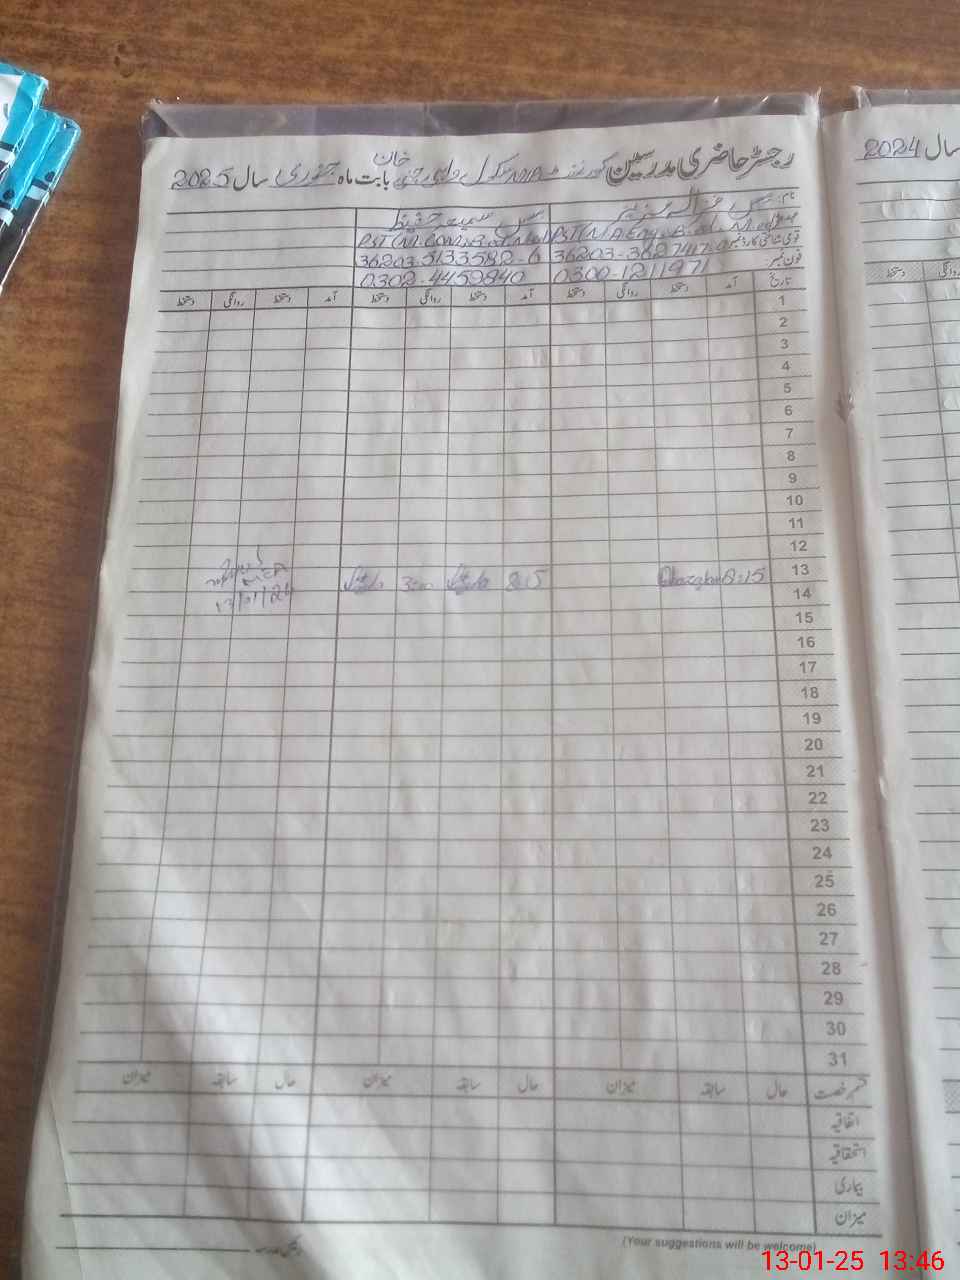 رجسٹر حاضری مدرسین گورنمنٹ سکول خان بابت ماہ جنوری سال 2025
سال 2024
نام:
مس سمیعہ حفیظ
PST (M.Com, B.Ed, M.ed) PST (M.A Eng, B.ed, M.
قومی شناختی کارڈ نمبر 36203-3627417-0 36203-5133582-6
فون نمبر: 0300-1211971 0302-4459840
تاریخ آمد دستخط روانگی دستخط آمد دستخط روانگی دستخط آمد دستخط روانگی دستخط
1
2
3
4
5
6
7
8
9
10
11
12
13 8:15 8:15 3:00 MEA
13/01/24
14
15
16
17
18
19
20
21
22
23
24
25
26
27
28
29
30
31
قسم رخصت حال سابقہ میزان حال سابقہ میزان حال سابقہ میزان
اتفاقیہ
استحقاقیہ
بیماری
میزان
(Your suggestions will be welcome)
13-01-25 13:46